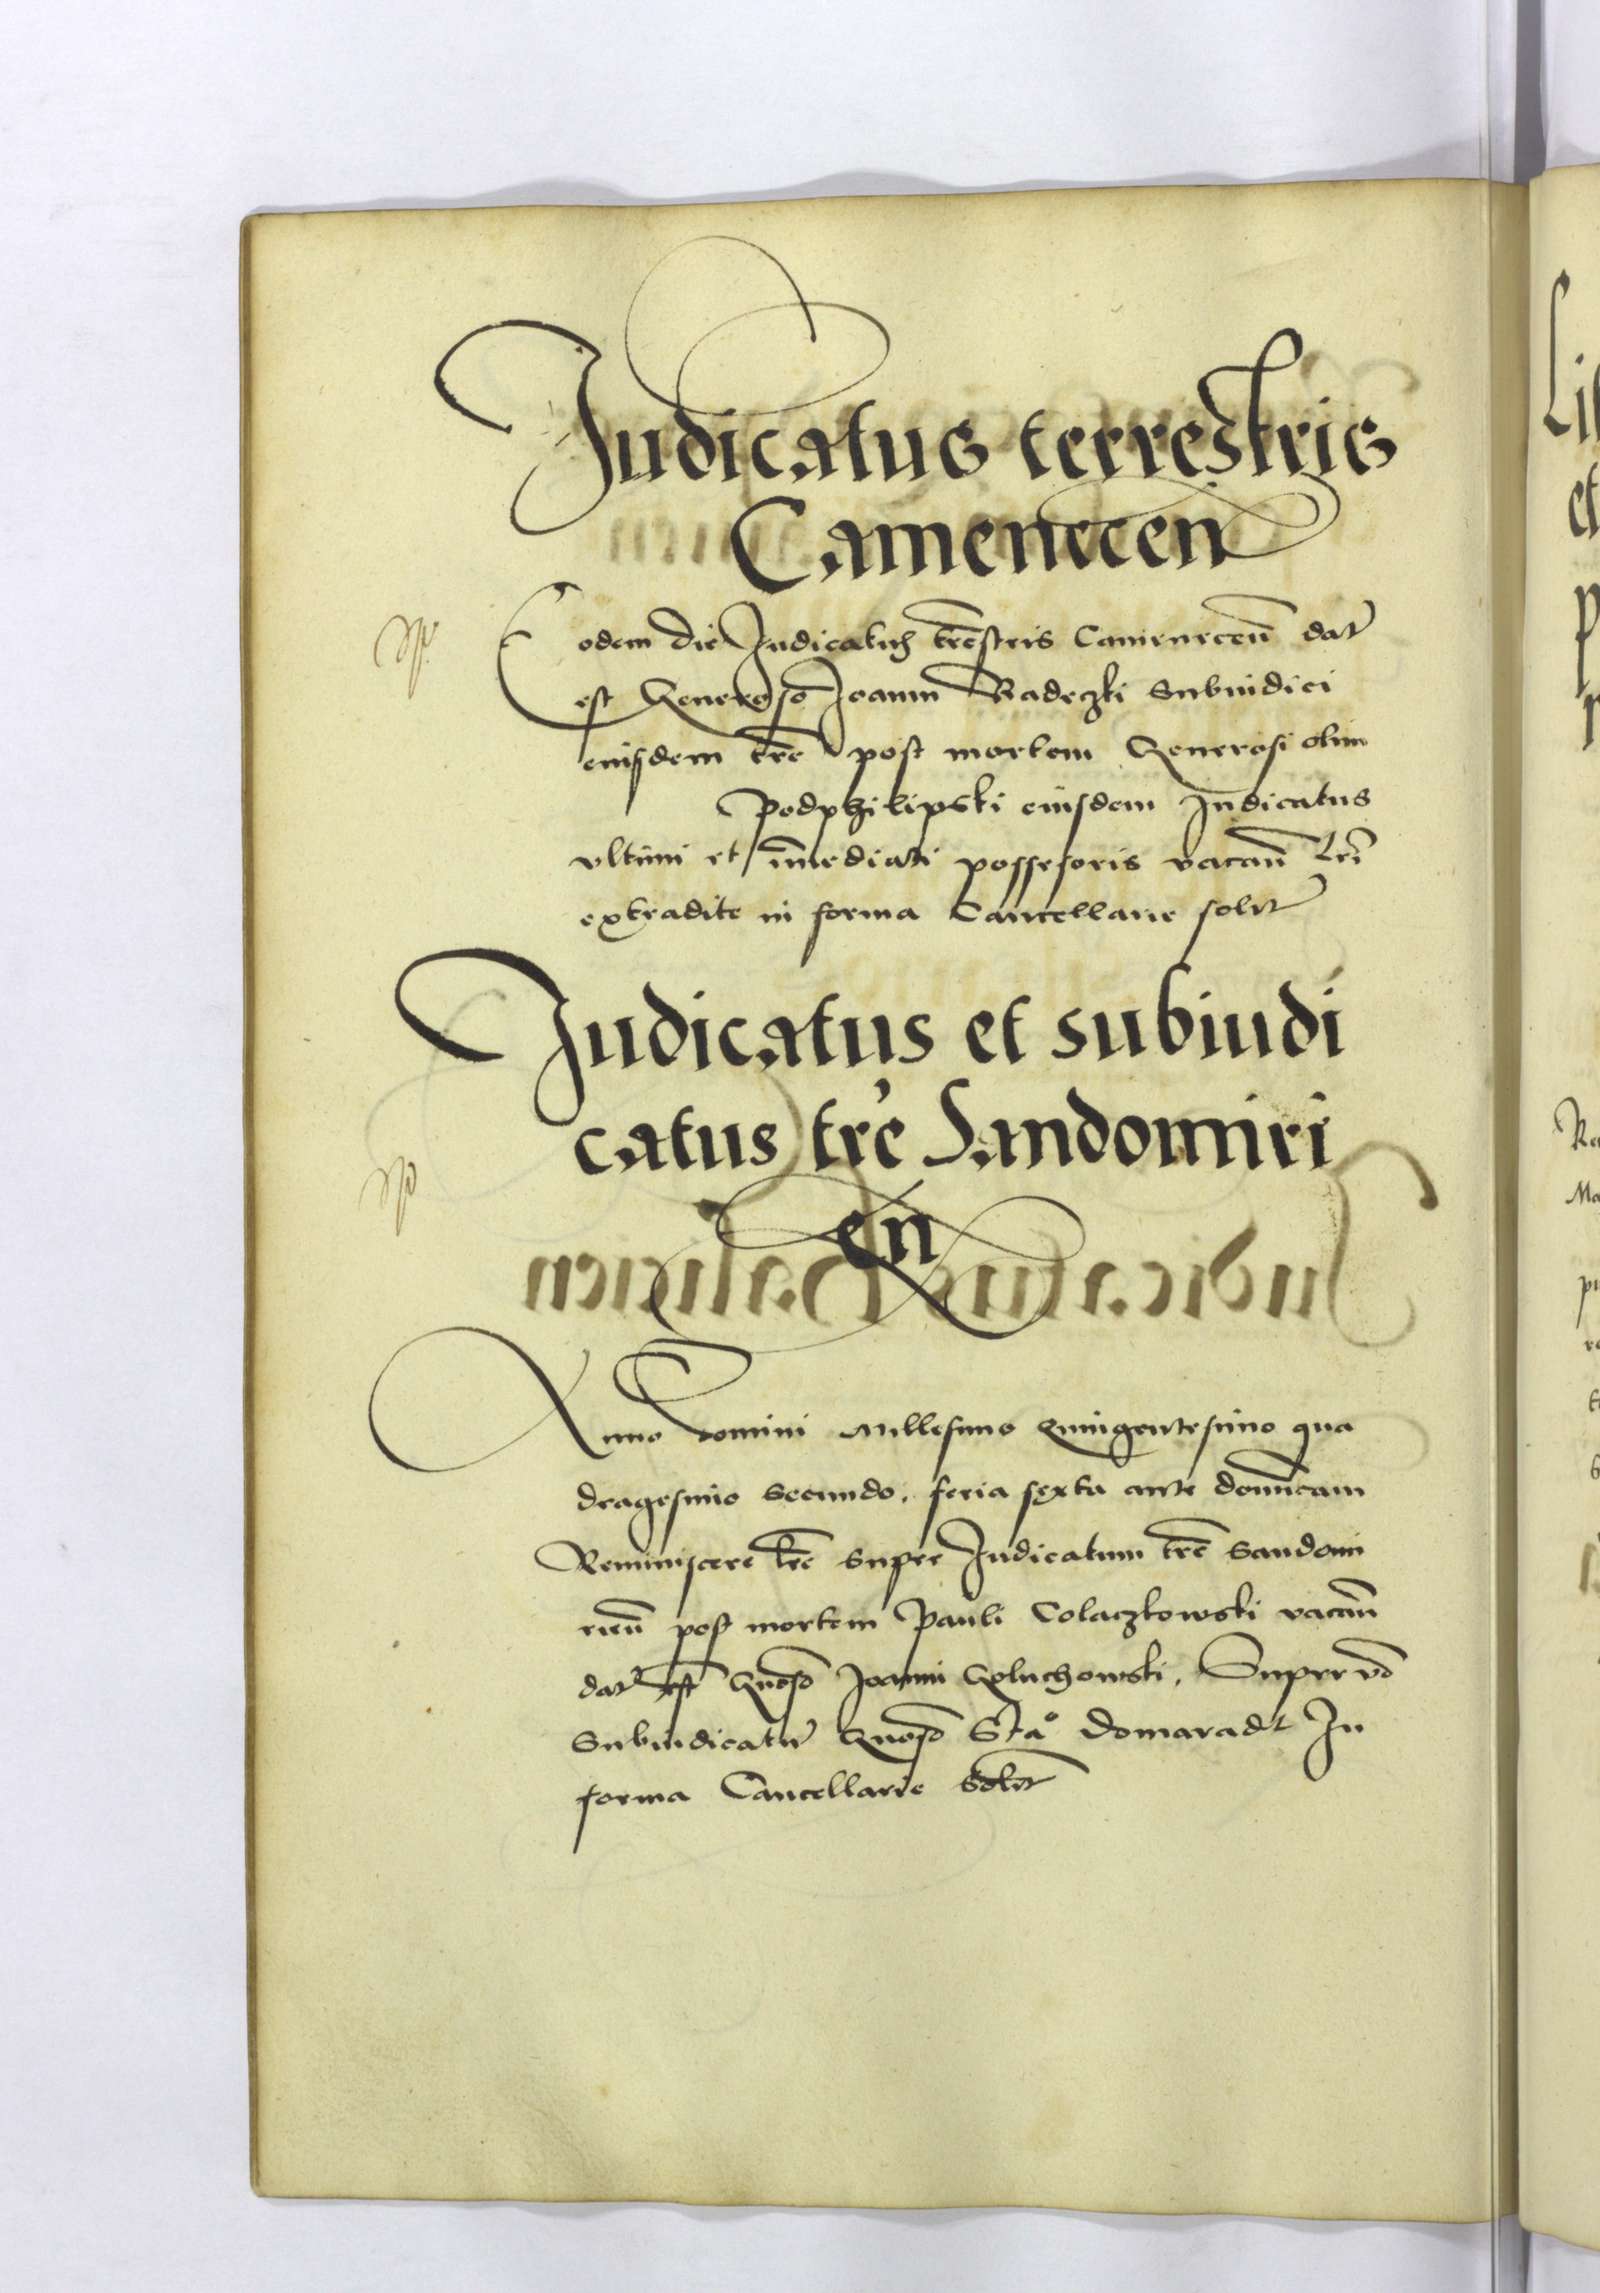 Judicatus terrestris
Camenecen
Eodem die Judicatus trestris Camenecen dat
est Generoso Joanni Radeczki Subiudici
eiusdem tre post mortem Generosi olim
Podphilipski eiusdem Judicatus
vltimi et imediati possesoris vacan
extradite in forma Cancellarie solit
Judicatus et subiudi
catus tre Sandomiri
en
Anno domini Millesimo Quingentesimo qua
dragesimo secundo, feria sexta ante dominicam
Reminiscere tre super Judicatum tre Sandomi
rien post mortem Pauli Colaczkowski vacan
dat est Gnoso Joanni Goluchowski, Super vo
Subiudicatu Gnoso Sta° Domaradz In
forma Cancellarie Solit